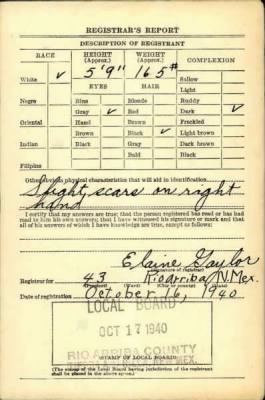 REGISTRAR'S REPORT
DESCRIPTION OF REGISTRANT
RACE HEIGHT (Approx.) WEIGHT (Approx.) COMPLEXION
White ✓ 5'9" 165# Sallow
EYES HAIR Light
Negro Blue Blonde Ruddy
Gray ✓ Red Dark ✓
Oriental Hazel Brown Freckled
Brown Black ✓ Light brown
Indian Black Gray Dark brown
Bald Black
Filipino
Other obvious physical characteristics that will aid in identification
Slight scars on right
hand
I certify that my answers are true; that the person registered has read or has had
read to him his own answers; that I have witnessed his signature or mark and that
all of his answers of which I have knowledge are true, except as follows:
Elaine Gaylor
(Signature of registrar)
Registrar for 43 Rio Arriba N. Mex.
(Precinct) (City or county) (State)
Date of registration October 16, 1940
LOCAL BOARD
OCT 17 1940
RIO ARRIBA COUNTY
(STAMP OF LOCAL BOARD)
(The stamp of the Local Board having jurisdiction of the registrant
shall be placed in the above space.)